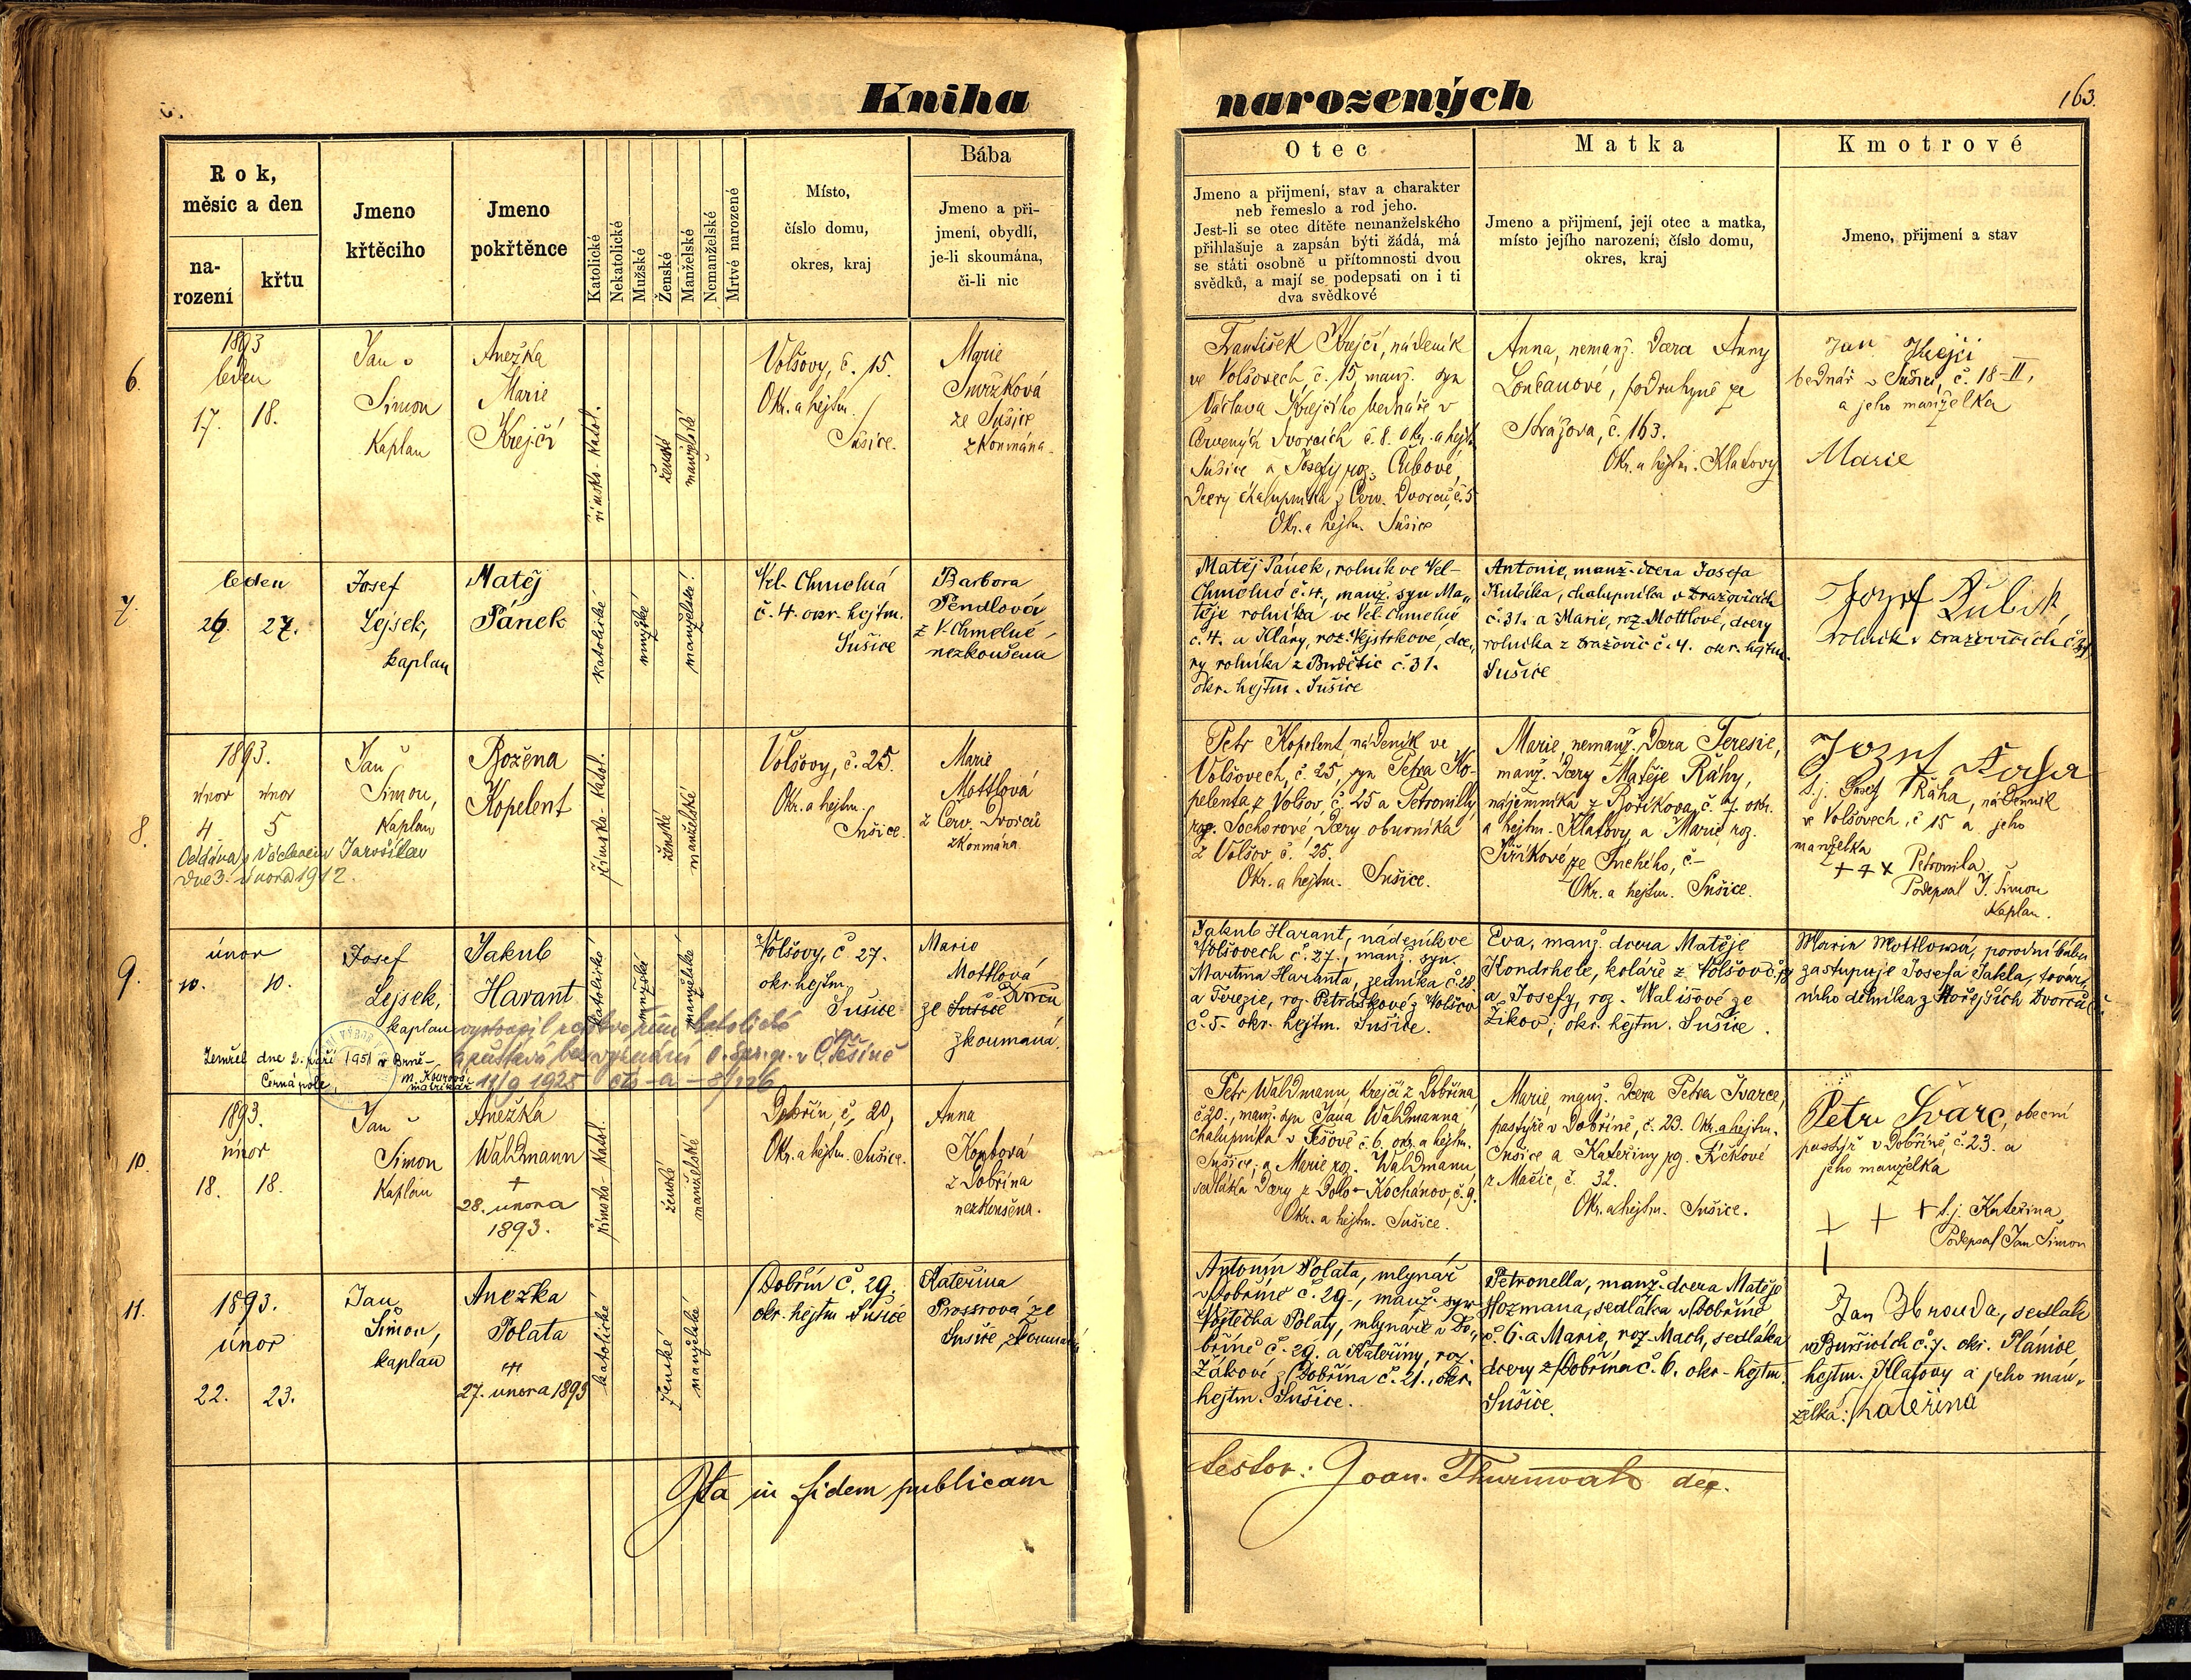 Kniha
narozených
163.
Rok,
měsíc a den
na-
rození
křtu
Jmeno
křtěcího
Jmeno
pokřtěnce
Katolické
Nekatolické
Mužské
Ženské
Manželské
Nemanželské
Mrtvé narozené
Místo,
číslo domu,
okres, kraj
Bába
Jmeno a při-
jmení, obydlí,
je-li skoumána,
či-li nic
Otec
Jmeno a přijmení, stav a charakter
neb řemeslo a rod jeho.
Jest-li se otec dítěte nemanželského
přihlašuje a zapsán býti žádá, má
se státi osobně u přítomnosti dvou
svědků, a mají se podepsati on i ti
dva svědkové
Matka
Jmeno a přijmení, její otec a matka,
místo jejího narození, číslo domu,
okres, kraj
Kmotrové
Jmeno, přijmení a stav
6.
1893
leden
17. 18.
Jan
Šimon
Kaplan
Anežka
Marie
Krejčí
římsko-katol.
ženské
manželské
Volšovy, č. 15.
Okr. a hejtm.
Sušice.
Marie
Smržková
ze Sušice
zkoumána.
František Krejčí, nádeník
ve Volšovech, č. 15, manž. syn
Václava Krejčího bednáře v
Červených Dvorcích č. 8. Okr. a hejtm.
Sušice a Josefy roz.
Dcery chalupníka z Červ. Dvorců, č. 5
Okr. a hejtm. Sušice
Anna, nemanž. Dcera Anny
podruhyně ze
Strážova, č. 163.
Okr. a hejtm. Klatovy
Jan Krejčí
bednář v Sušici, č. 18-II,
a jeho manželka
Marie
7.
leden
26. 27.
Josef
Lejsek,
kaplan
Matěj
Pánek
katolické
mužské
manželské
Vel. Chmelná
č. 4. okr. hejtm.
Sušice
Barbora
Pendlová
z V. Chmelné,
nezkoušena
Matěj Pánek, rolník ve Vel-
Chmelné č. 4., manž. syn Ma-
těje rolníka ve Vel. Chmelné
č. 4. a Klary, roz. Vejstrkové, dce-
ry rolníka z Budětic č. 31.
okr. hejtm. Sušice
Antonie, manž. dcera Josefa
Kubíka, chalupníka v Dražovicích
č. 31. a Marie, roz. Mottlové, dcery
rolníka z Dražovic č. 4. okr. hejtm.
Sušice
Jozef Kubík,
rolník v Dražovicích č.
8.
1893.
únor únor
4 5
Jan
Šimon,
Kaplan
Oddána s Václavem Jarošílem
dne 3. února 1912.
Božena
Kopelent
římsko-katol.
ženské
manželské
Volšovy, č. 25.
Okr. a hejtm.
Sušice.
Marie
Mottlová
z Červ. Dvorců
zkoumána.
Petr Kopelent, nádeník ve
Volšovech, č. 25, syn Petra Ko-
pelenta z Volšov, č. 25 a Petronilly
roz. Sochorové, Dcery oburníka
z Volšov č. 25.
Okr. a hejtm. Sušice.
Marie, nemanž. Dcera Teresie,
manž. Dcery Matěje Ráhy,
nájemníka z Bořikova, č. 7. okr.
a hejtm. Klatovy a Marie roz.
Jiříkové ze Suchého, č-
Okr. a hejtm. Sušice.
t. j. Josef Ráha, nádenník
ve Volšovech, č 15 a jeho
manželka
+ + x Petronila
Podepsal J. Šimon
Kaplan.
9.
únor
10. 10.
Josef
Lejsek,
kaplan
Jakub
Harant
katolické
mužské
manželské
Volšovy, č 27.
okr. hejtm.
Sušice
Marie
Mottlová
ze Sušice Dvorců
zkoumaná.
vystoupil z církve řím. katolické
a zůstává bez vyznání
11/9 1925
Zemřel dne 2. září 1951 v Brně-
Černá pole,
matrikář
Jakub Harant, nádeník ve
Volšovech č. 27., manž. syn
Martina Haranta, zedníka č. 28.
a Terezie, roz. Petráškové z Volšov
č. 5. okr. hejtm. Sušice.
Eva, manž. dcera Matěje
Kondrhele, koláře z Volšov č.
a Josefy, roz. Wališové ze
Žikov; okr. hejtm. Sušice.
Marie Mottlová, porodní bába
zastupuje Josefa Jakla, továr-
ního dělníka z Hořejších Dvorců č
10.
1893.
únor
18. 18.
Jan
Šimon
Kaplan
Anežka
Waldmann
+
28. února
1893.
římsko-katol.
ženské
manželské
Dobřín, č. 20,
Okr. a hejtm. Sušice.
Anna
Korbová
z Dobřína
nezkoušena.
Petr Waldmann, krejčí z Dobřína,
č. 20., manž. syn Jana Waldmanna
chalupníka v Těšově č. 6, okr. a hejtm.
Sušice; a Marie roz. Waldmann
sedláka Dcery z Dolo-Kochánov, č. 9.
Okr. a hejtm. Sušice.
Marie, manž. Dcera Petra Švarce,
pastýře v Dobříně, č. 23. Okr. a hejtm.
Sušice a Kateřiny roz. Fičkové
z Mačic, č. 32.
Okr. a hejtm. Sušice.
Petr Švarc, obecní
pastýř v Dobříně, č. 23. a
jeho manželka
+ + + t. j. Kateřina
Podepsal Jan Šimon
11.
1893.
únor
22. 23.
Jan
Šimon,
kaplan
Anežka
Polata
+
27. února 1893
katolické
ženské
manželské
Dobřín č. 29.
okr. hejtm Sušice
Kateřina
Prossrová ze
Sušice, zkoumaná
Antonín Polata, mlynář
v Dobříně č. 29., manž. syn
Vojtěcha Polaty, mlynáře v Do-
bříně č. 29. a Kateřiny, roz.
Žákové z Dobřína č. 21., okr.
hejtm. Sušice.
Petronella, manž. dcera Matěje
Hozmana, sedláka v Dobříně
č. 6. a Marie, roz. Mach, sedláka
dcery z Dobřína č. 6. okr-hejtm.
Sušice.
Jan Hrouda, sedlák
v Buršicích č. 7. okr. Plánice,
hejtm. Klatovy a jeho man-
želka: Kateřina
Ita in fidem publicam
testor: Joan. Thurnwald dec.